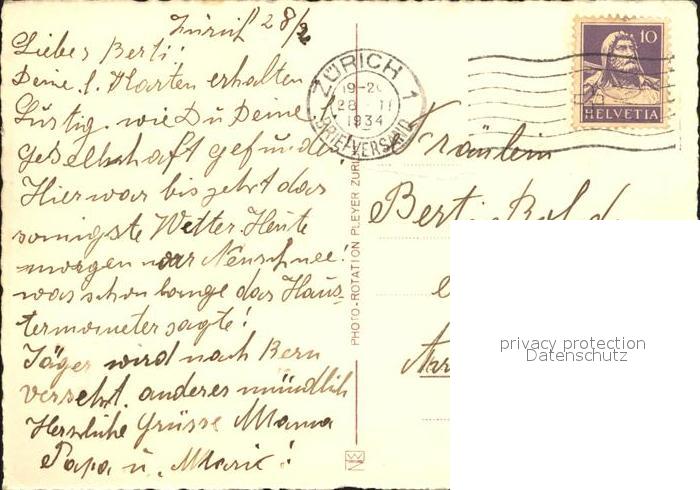 Zürich 28/2
Liebes Berti!
Deine l. Karten erhalten
Lustig, wie Du Deine
Gesellschaft gefunden!
Hier war bis jetzt das
sonnigste Wetter. Heute
morgen war Neuschnee!
was schon lange das Haus-
termometer sagte!
Jäger wird nach Bern
versetzt. anderes mündlich
Herzliche Grüsse Mama
Papa u. Marie!
PHOTO-ROTATION PLEYER ZURI
ZÜRICH 1
28 II
1934
BRIEFVERSAND
10
HELVETIA
Fräulein
Berti
privacy protection
Datenschutz